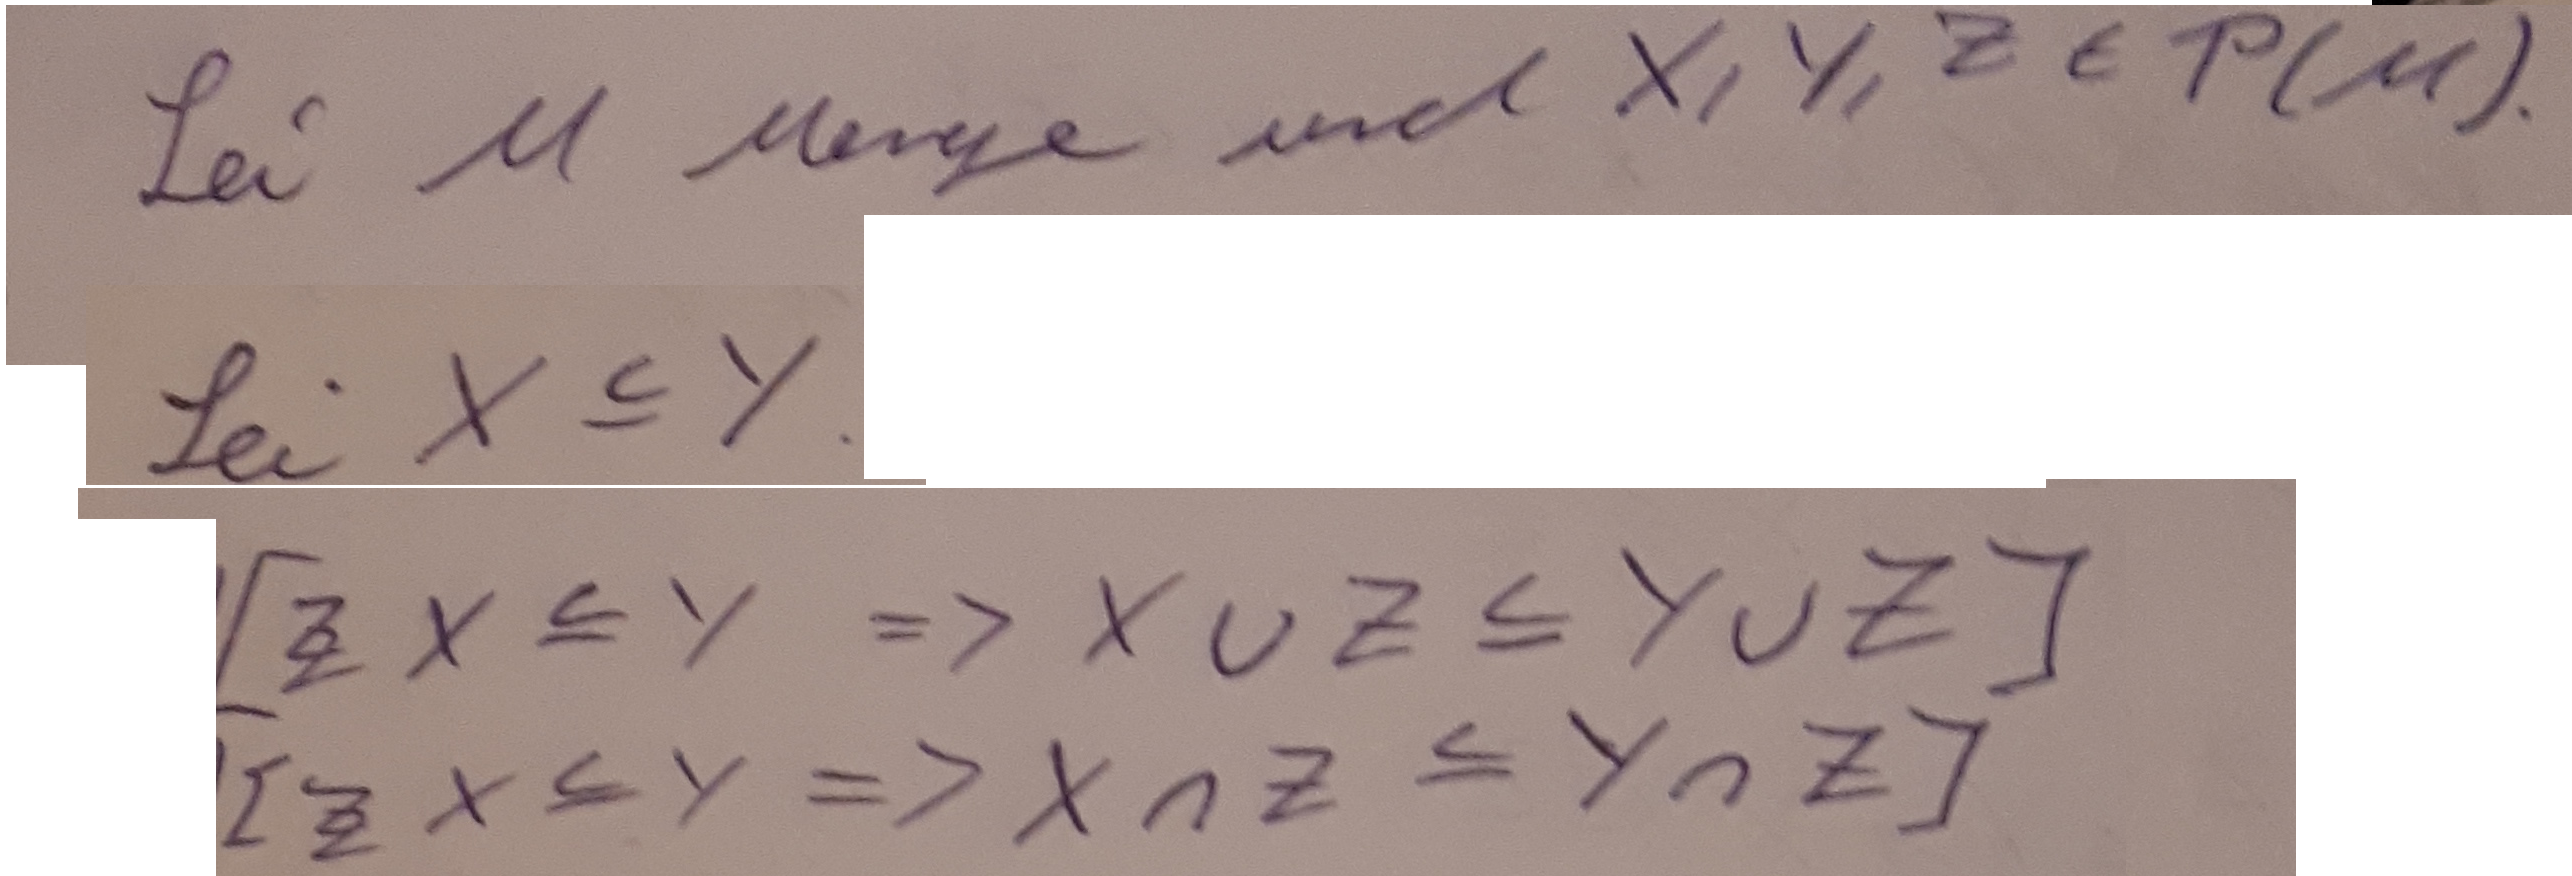 Sei M Menge und X, Y, Z ∈ P(M).
Sei X ⊆ Y.
[ZZ X ⊆ Y => X ∪ Z ⊆ Y ∪ Z]
[ZZ X ⊆ Y => X ∩ Z ⊆ Y ∩ Z]